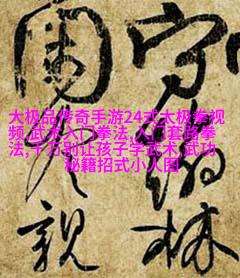 大极品传奇手游24式太极拳视
频,武术入门拳法,入门套路拳
法,千万别让孩子学武术,武功
秘籍招式小人图
守 林
親